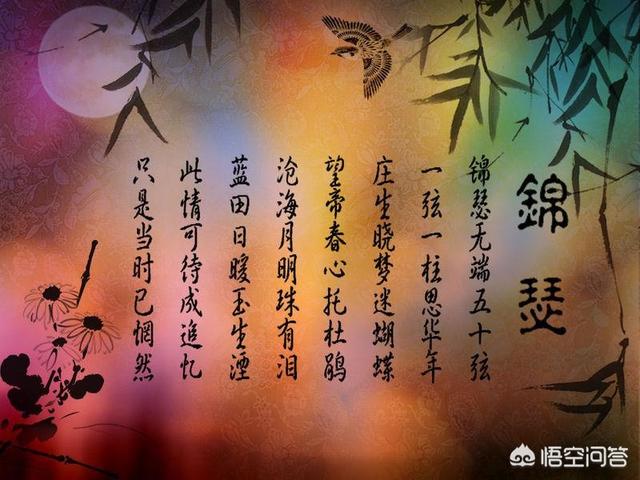 錦瑟
锦瑟无端五十弦
一弦一柱思华年
庄生晓梦迷蝴蝶
望帝春心托杜鹃
沧海月明珠有泪
蓝田日暖玉生湮
此情可待成追忆
只是当时已惘然
悟空问答